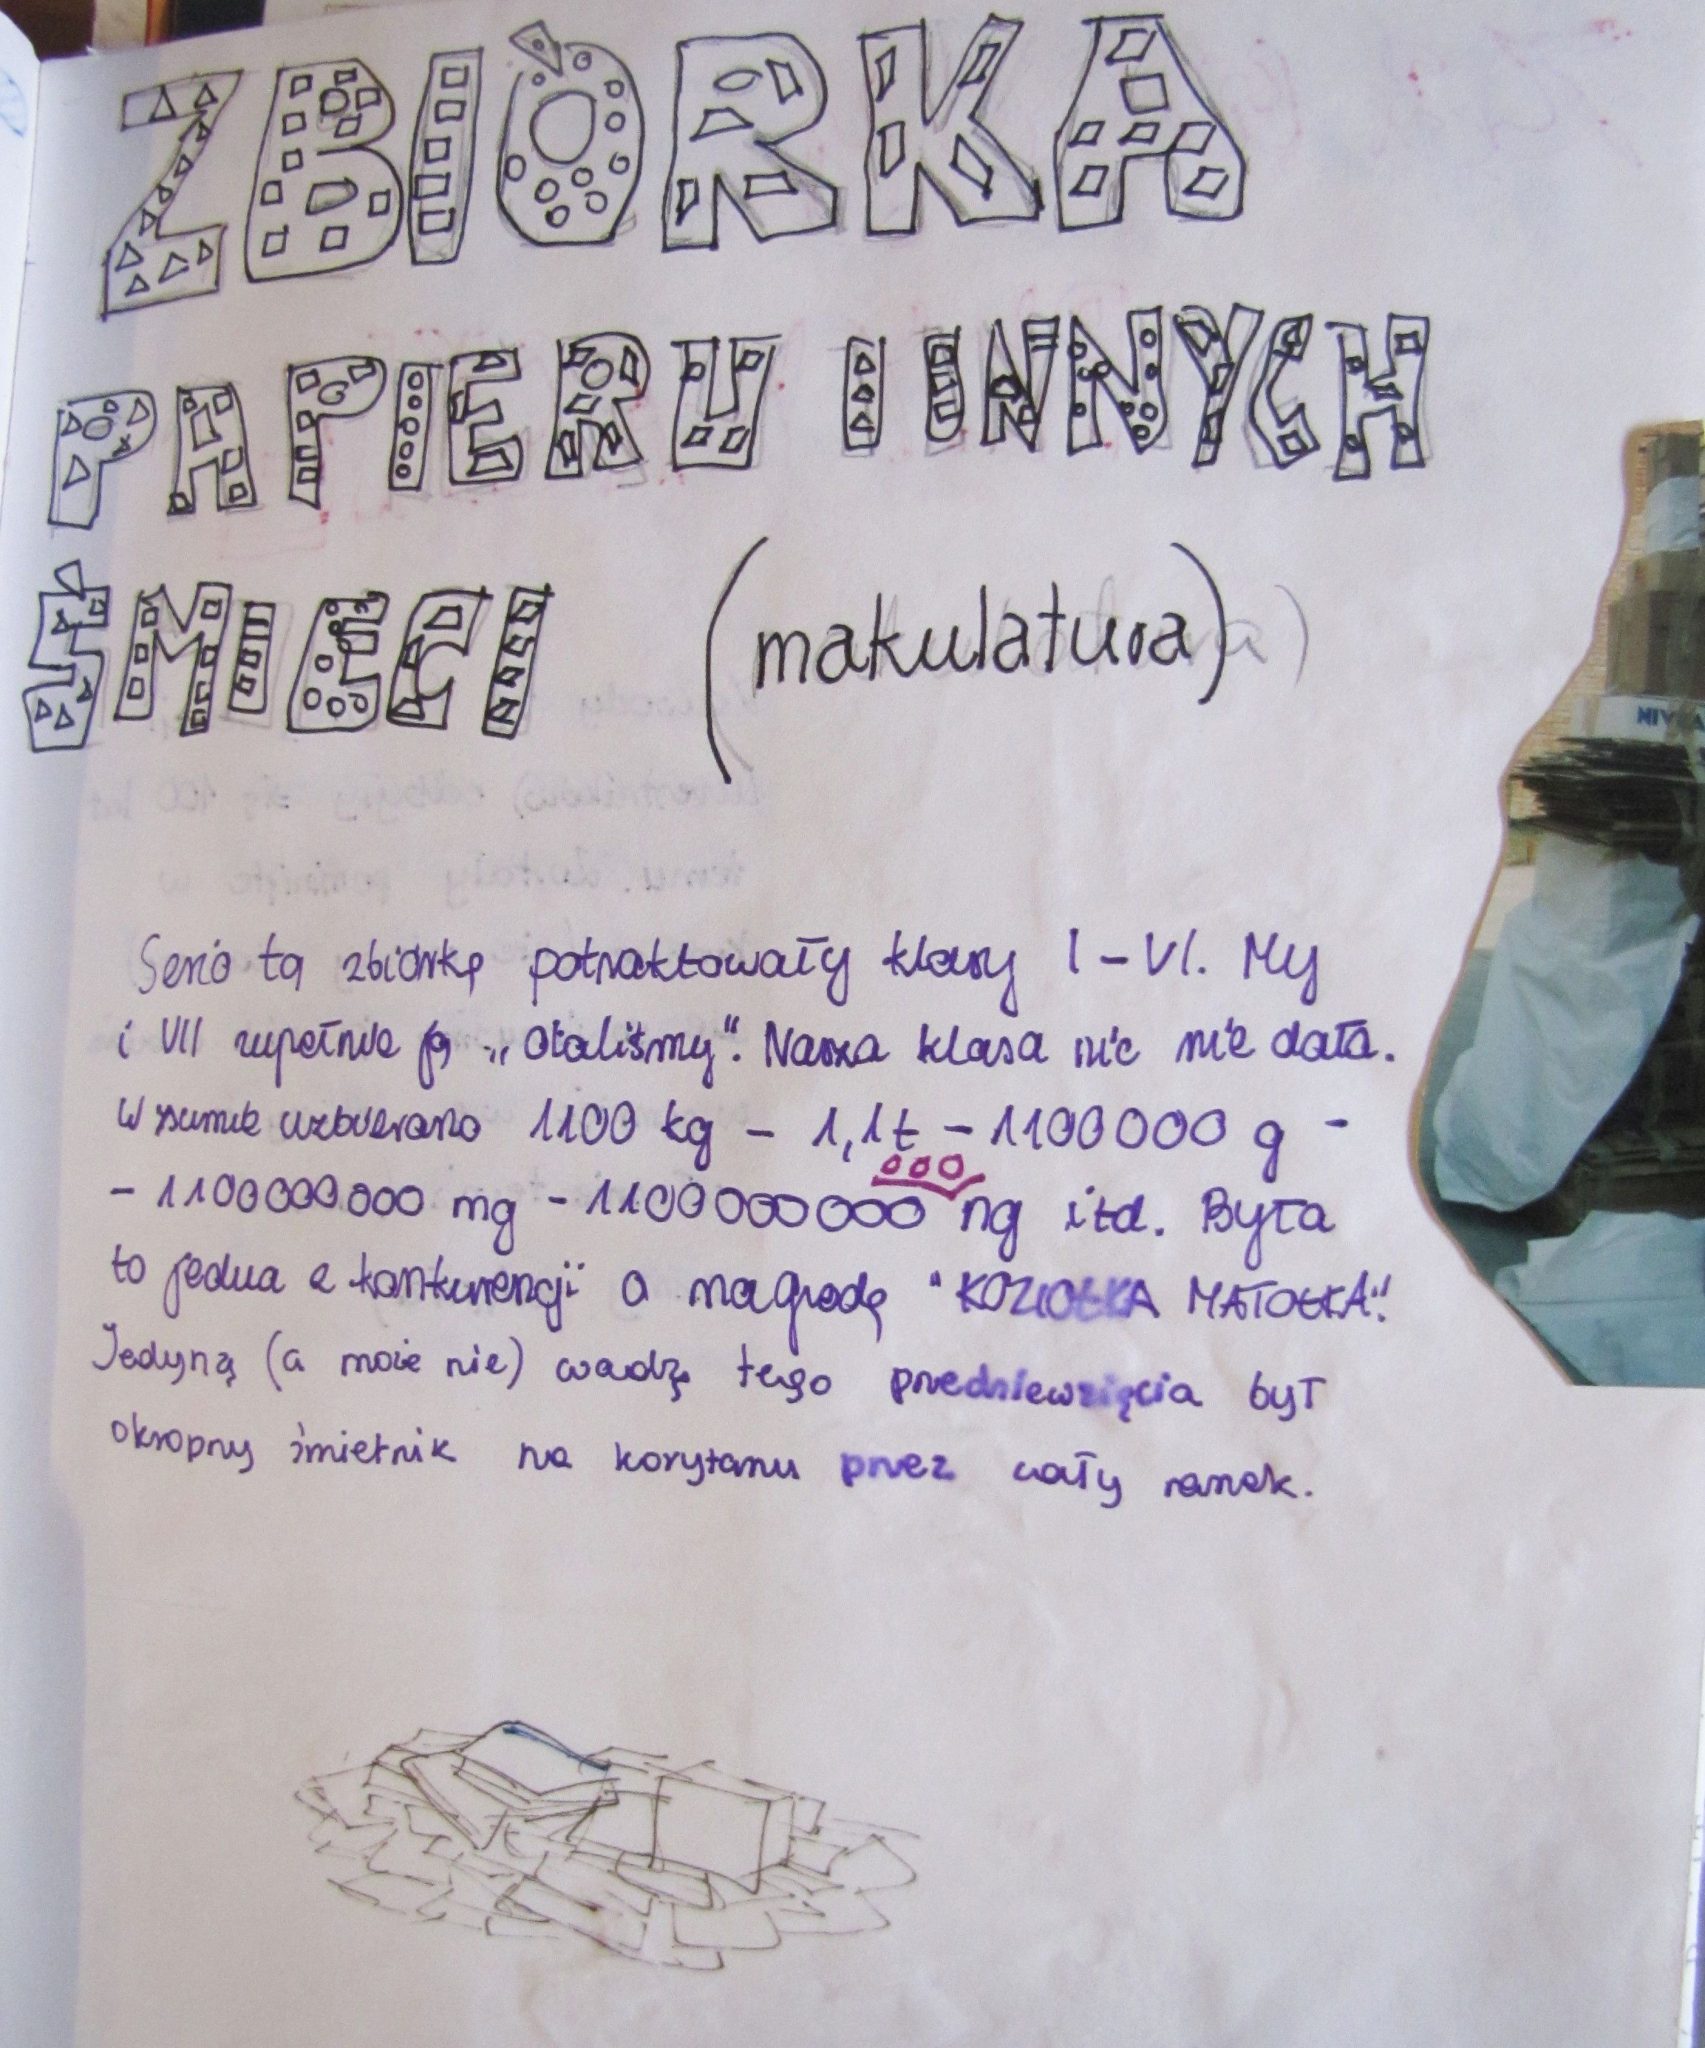 ZBIÓRKA
PAPIERU I INNYCH
ŚMIECI (makulatura)
Serio tą zbiórkę potraktowały klasy I-VI. My
i VII zupełnie ją „olaliśmy". Nasza klasa nic nie dała.
W sumie uzbierano 1100 kg - 1,1t - 1100000 g -
000
- 1100000000 mg - 1100000000 ng itd. Była
to jedna z konkurencji o nagrodę "KOZIOŁKA MATOŁKA".
Jedyną (a może nie) wadzę tego przedsiewzięcia był
okropny śmietnik na korytarzu przez cały ranek.
NIVEA